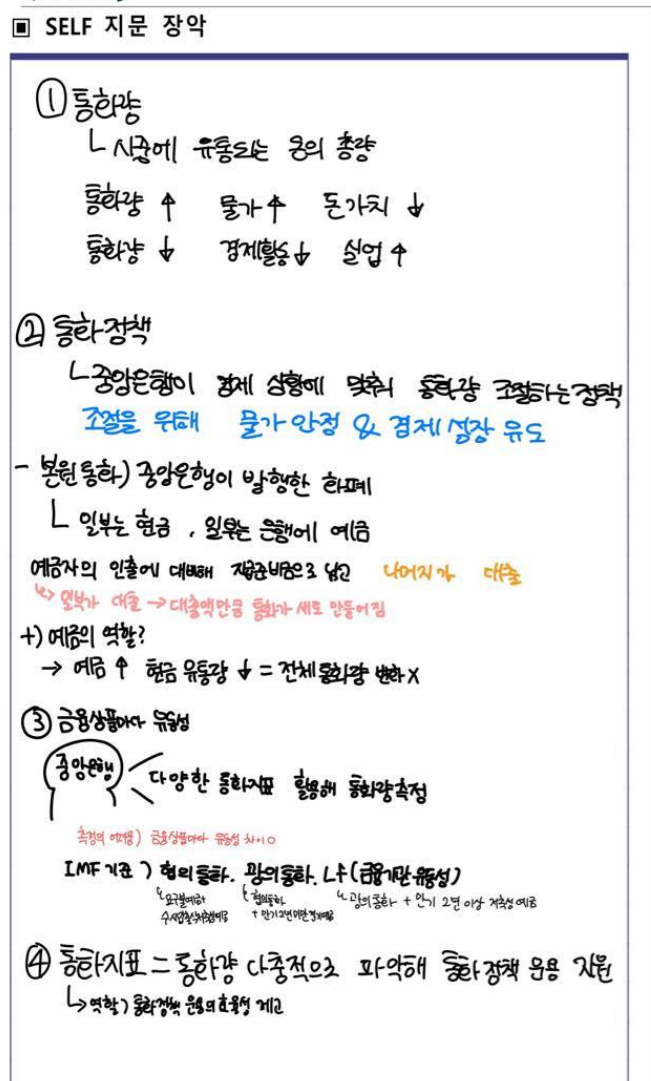 ▣ SELF 지문 장악
① 통화량
ㄴ 시중에 유통되는 돈의 총량
통화량 ↑ 물가 ↑ 돈가치 ↓
통화량 ↓ 경제활동 ↓ 실업 ↑
② 통화정책
ㄴ 중앙은행이 경제 상황에 맞춰 통화량 조절하는 정책
조절을 위해 물가 안정 & 경제 성장 유도
- 본원통화) 중앙은행이 발행한 화폐
ㄴ 일부는 현금, 일부는 은행에 예금
예금자의 인출에 대비해 지급준비금으로 남고 나머지가 대출
↳ 일부가 대출 → 대출액만큼 통화가 새로 만들어짐
+) 예금의 역할?
→ 예금 ↑ 현금 유통량 ↓ = 전체 통화량 변화 X
③ 금융상품마다 유동성
중앙은행 다양한 통화지표 활용해 통화량 측정
측정의 어려움) 금융상품마다 유동성 차이 O
IMF 기준) 협의통화. 광의통화. Lf (금융기관 유동성)
ㄴ 요구불예금+ ㄴ 협의통화 ㄴ 광의통화 + 만기 2년 이상 저축성 예금
수시입출식저축예금 + 만기 2년 미만 정기예금
④ 통화지표 = 통화량 다층적으로 파악해 통화 정책 운용 지원
↳ 역할) 통화정책 운용의 효율성 제고